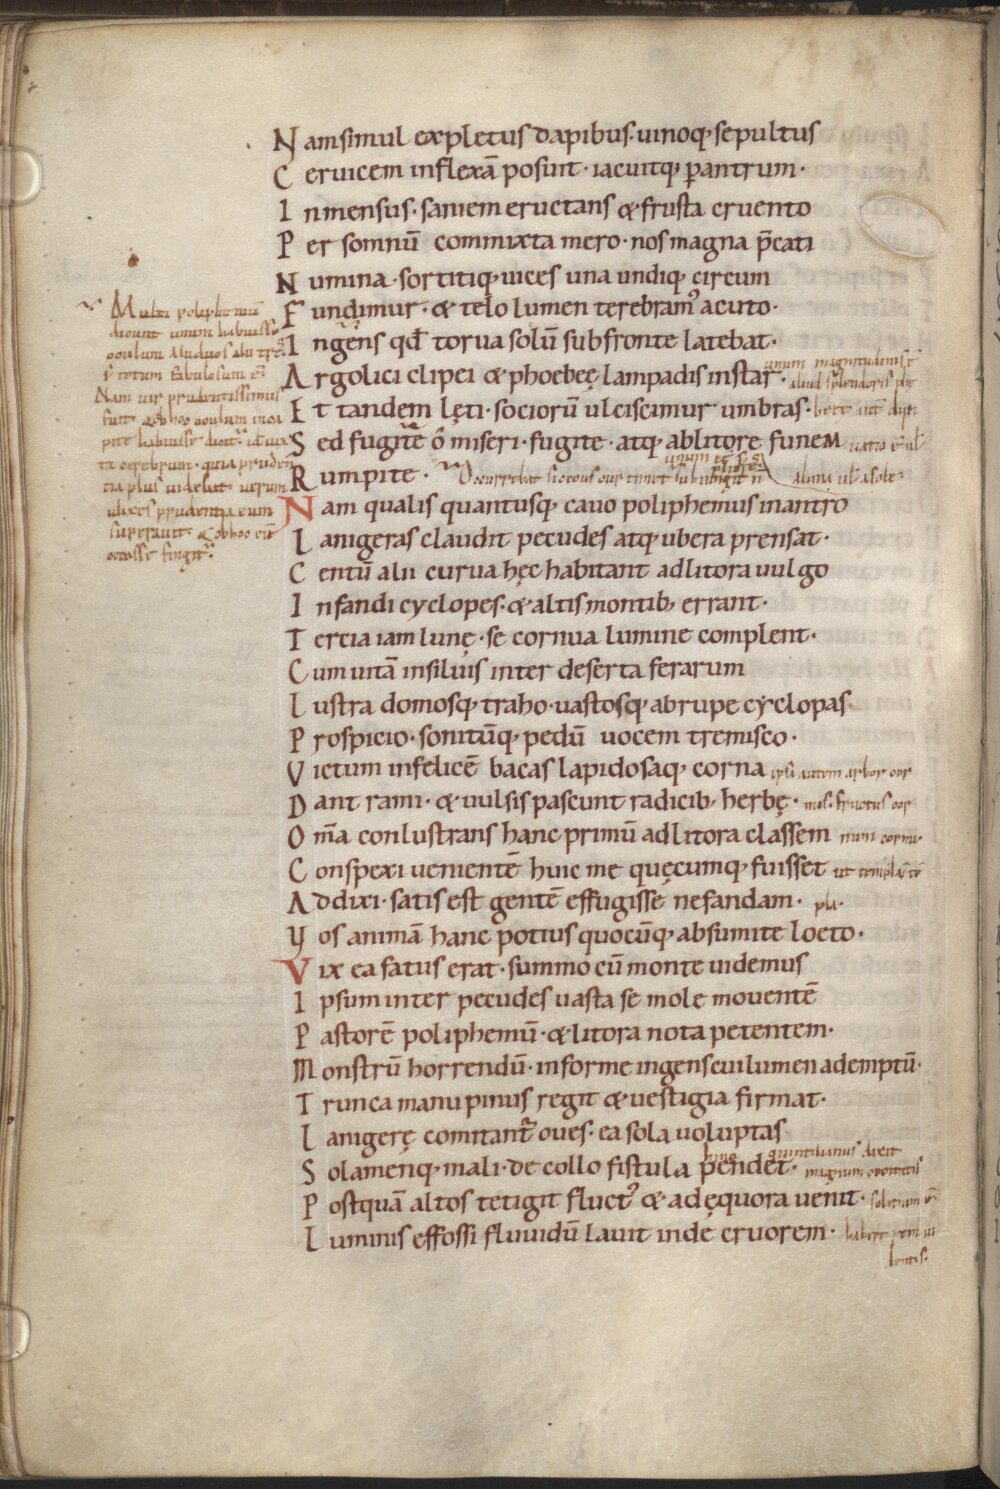 N am simul expletus dapibus· uinoq; sepultus
C eruicem inflexā posuit· iacuitq; p antrum·
I nmensus· saniem eructans & frusta cruento
P er somnū commixta mero· nos magna p̄cati
N umina· sortitiq; uices una undiq; circum
F undimur· & telo lumen terebram᾽ acuto·
I ngens qđ torua solū sub fronte latebat·
A rgolici clipei & phoebeę lampadis instar·
E t tandem lęti· sociorū ulciscimur umbras·
S ed fugite ō miseri· fugite· atq; ablitore funem
R umpite·
N am qualis quantusq; cauo poliphemus inantro
L anigeras claudit pecudes atq; ubera prensat·
C entū alii curua hęc habitant adlitora uulgo
I nfandi cyclopes· & altis montib; errant·
T ertia iam lunę· se cornua lumine complent·
C um uitā insiluis inter deserta ferarum
L ustra domosq; traho· uastosq; abrupe cyclopas·
P rospicio· sonitūq; pedū uocem tremisco·
V ictum infelicē bacas lapidosaq; corna
D ant rami· & uulsis pascunt radicib; herbę·
O m̄a conlustrans hanc primū adlitora classem
C onspexi uenientē huic me quęcumq; fuisset
A ddixi· satis est gentē effugisse nefandam·
V os animā hanc potius quocūq; absumite loeto·
V ix ea fatus erat· summo cū monte uidemus
I psum inter pecudes uasta se mole mouentē
P astorē poliphemū· & litora nota petentem·
M onstrū horrendū· informe ingens cui lumen ademptū·
T runca manu pinus regit & uestigia firmat·
L anigerę comitant᾽ oues· ea sola uoluptas
S olamenq; mali· de collo fistula pendet·
P ostquā altos tetigit fluct᾽ & ad ęquora uenit·
L uminis effossi fluuidū lauit inde cruorem·
M ulti poliphemū
dicunt unum habuisse
oculum alii duos alii tres
totum fabulosum ē
Nam uir prudentissimus
fuit & ob hoc oculum inca
pite habuisse dicit᾽ id iux
ta cerebrum· quia pruden
tia plus uidebat uerum
ulixes prudentia eum
superauit & ob hoc eū
cecasse fingit᾽